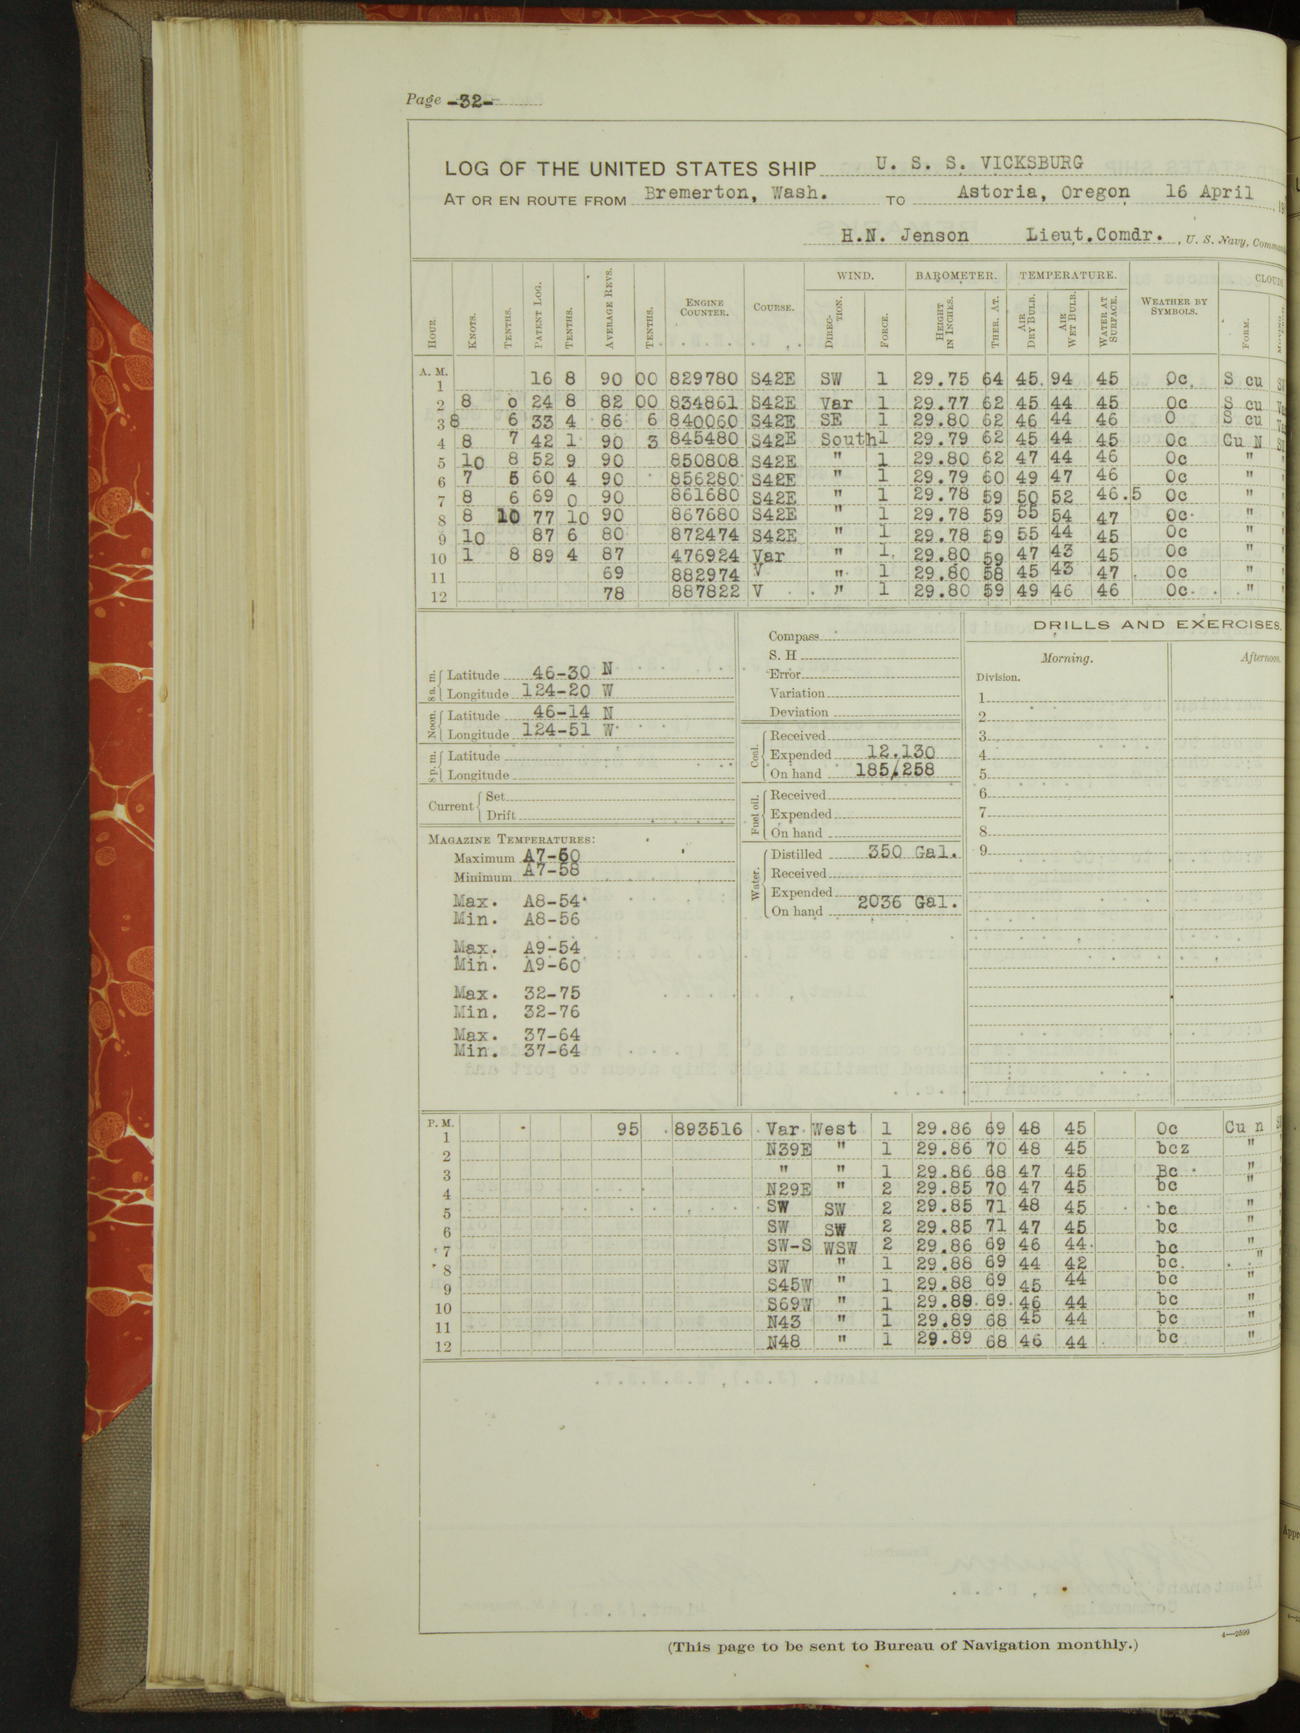 Page -32-
LOG OF THE UNITED STATES SHIP U. S. S. VICKSBURG
AT OR EN ROUTE FROM Bremerton, Wash. TO Astoria, Oregon 16 April
H.N. Jenson Lieut.Comdr. , U. S. Navy,
WIND. BAROMETER. TEMPERATURE.
HOUR. KNOTS. TENTHS. PATENT LOG. TENTHS. AVERAGE REVS. TENTHS. ENGINE COUNTER. COURSE. DIRECTION. FORCE. HEIGHT IN INCHES. THER. AT. AIR DRY BULB. AIR WET BULB. WATER AT SURFACE. WEATHER BY SYMBOLS. FORM.
A. M.
1 16 8 90 00 829780 S42E SW 1 29.75 64 45. 94 45 Oc, S cu
2 8 0 24 8 82 00 834861 S42E Var 1 29.77 62 45 44 45 Oc S cu
3 8 6 33 4 86 6 840060 S42E SE 1 29.80 62 46 44 46 O S cu
4 8 7 42 1 90 3 845480 S42E South 1 29.79 62 45 44 45 Oc Cu N
5 10 8 52 9 90 850808 S42E " 1 29.80 62 47 44 46 Oc "
6 7 5 60 4 90 856280 S42E " 1 29.79 60 49 47 46 Oc "
7 8 6 69 0 90 861680 S42E " 1 29.78 59 50 52 46.5 Oc "
8 8 10 77 10 90 867680 S42E " 1 29.78 59 55 54 47 Oc "
9 10 87 6 80 872474 S42E " 1 29.78 59 55 44 45 Oc "
10 1 8 89 4 87 476924 Var " 1. 29.80 59 47 43 45 Oc "
11 69 882974 V " 1 29.80 58 45 43 47 Oc "
12 78 887822 V " 1 29.80 59 49 46 46 Oc "
8 a. m. Latitude 46-30 N
Longitude 124-20 W
Noon. Latitude 46-14 N
Longitude 124-51 W
8 p. m. Latitude
Longitude
Current Set
Drift
MAGAZINE TEMPERATURES:
Maximum A7-60
Minimum A7-58
Max. A8-54
Min. A8-56
Max. A9-54
Min. A9-60
Max. 32-75
Min. 32-76
Max. 37-64
Min. 37-64
Compass
S. H
Error
Variation
Deviation
Coal. Received
Expended 12.130
On hand 185,258
Fuel oil. Received
Expended
On hand
Water. Distilled 350 Gal.
Received
Expended
On hand 2036 Gal.
DRILLS AND EXERCISES.
Morning. Afternoon.
Division.
1
2
3
4
5
6
7
8
9
P. M.
1 95 893516 Var West 1 29.86 69 48 45 Oc Cu n
2 N39E " 1 29.86 70 48 45 bcz "
3 " " 1 29.86 68 47 45 Bc "
4 N29E " 2 29.85 70 47 45 bc "
5 SW SW 2 29.85 71 48 45 bc "
6 SW SW 2 29.85 71 47 45 bc "
7 SW-S WSW 2 29.86 69 46 44 bc "
8 SW " 1 29.88 69 44 42 bc. "
9 S45W " 1 29.88 69 45 44 bc "
10 S69W " 1 29.89 69. 46 44 bc "
11 N43 " 1 29.89 68 45 44 bc "
12 N48 " 1 29.89 68 46 44 bc "
(This page to be sent to Bureau of Navigation monthly.)
4—2599